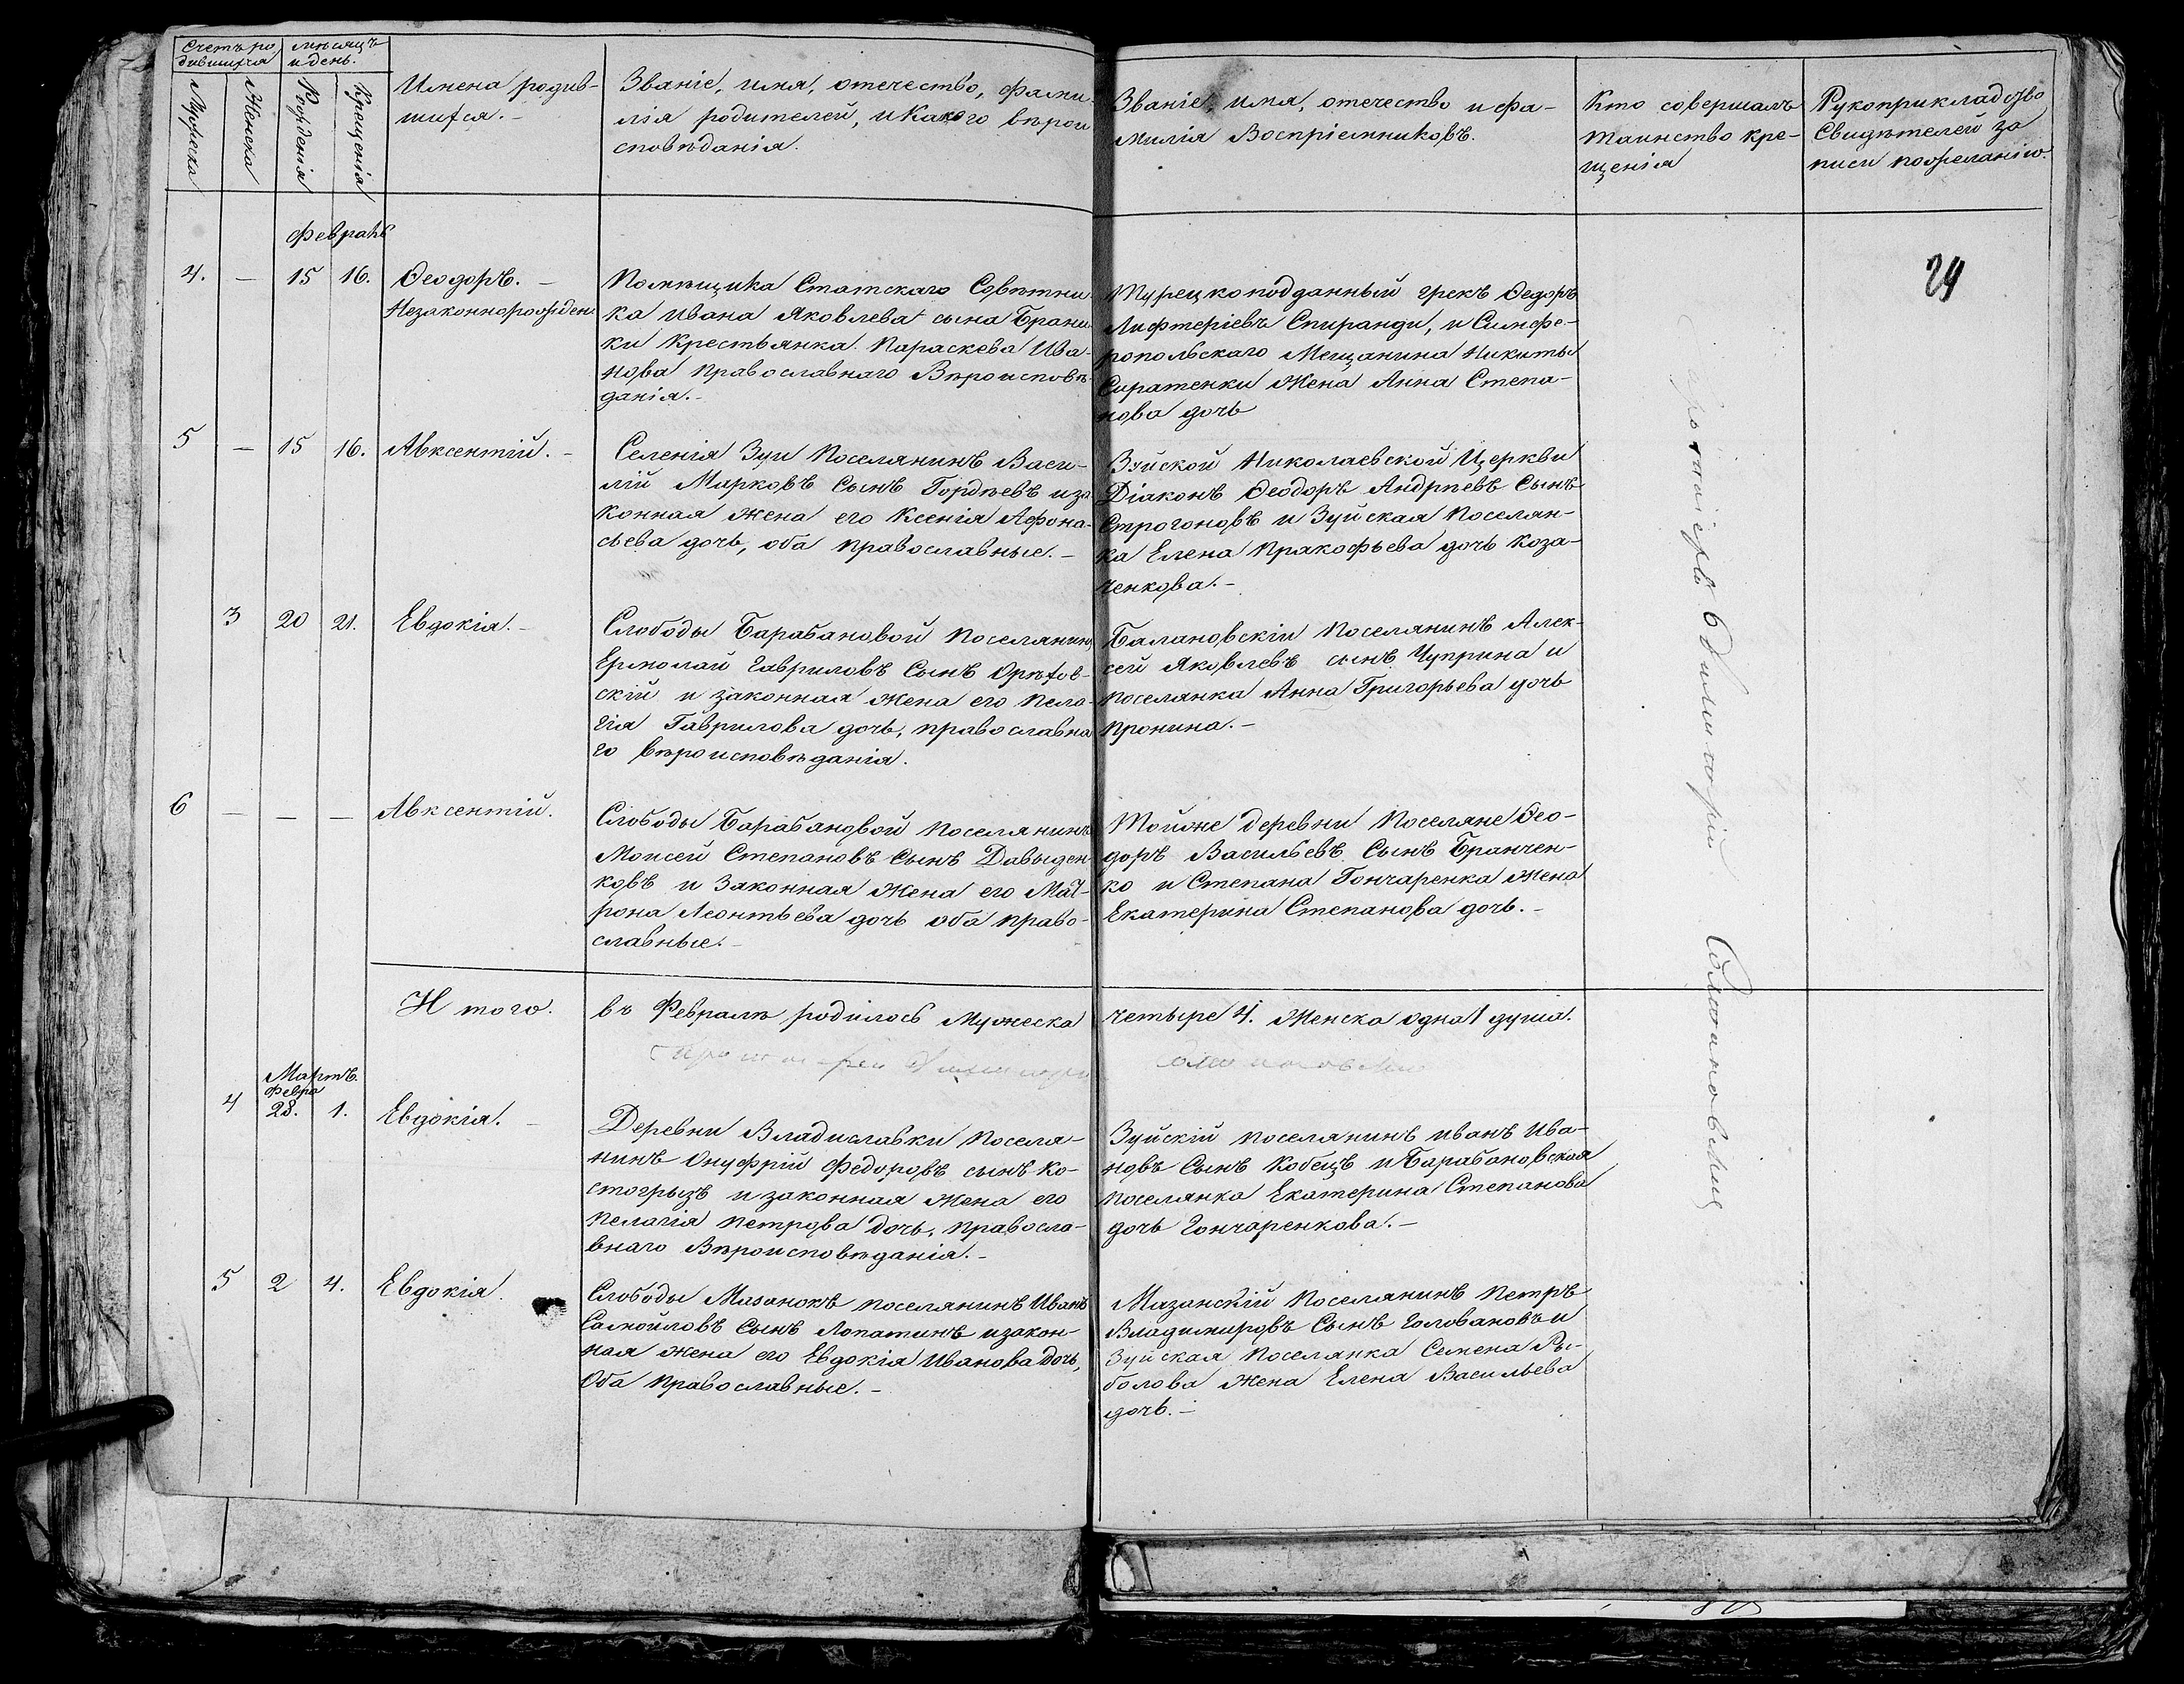 Счетъ ро
дившихся
мѣсяцъ
и день.
Мужеска
Женска
Рожденія
Крещенія
Имена родив-
шихся.-
Званіе, имя, отечество, фами-
лія родителей, и какого вѣрои
сповѣданія.
Званіе, имя, отечество и фа-
милія Воспріемниковъ.
Кто совершалъ
таинство кре-
щенія
Рукоприкладство
Свидѣтелей за
писи по желанію.
29
Февраль
4. - 15 16. Ѳеодоръ. -
Незаконнорожден.
Помѣщика Статскаго Совѣтни-
ка Ивана Яковлева сына Брани
ки крестьянка Параскева Ива-
нова православнаго Вѣроисповѣ-
данія.-
Турецкоподданный грекъ Ѳедоръ
Лифтеріевъ Спиранди, и Симфе-
ропольскаго Мещанина Никиты
Сиратенки Жена Анна Степа-
нова дочь
5 - 15 16. Авксентій. -
Селенія Зуи Поселянинъ Васи-
лій Марковъ Сынъ Гордѣевъ и за
конная жена его Ксенія Афона-
сьева дочь, оба православные.-
Зуйской Николаевской Церкви
Діаконъ Ѳеодоръ Андрѣевъ Сынъ
Строгоновъ и Зуйская Поселян-
ка Елена Пракофьева дочь Коза-
ченкова.-
3 20 21. Евдокія.-
Слободы Барабановой поселянинъ
Ермолай Гавриловъ Сынъ Орѣхов-
скій и законная жена его Пела-
гія Гаврилова дочь, православна
го вѣроисповѣданія.
Балановскій Поселянинъ Алек-
сей Яковлевъ сынъ Чуприна и
поселянка Анна Григорьева дочь
Пронина.-
6 - - - Авксентій.
Слободы Барабановой поселянинъ
Моисей Степановъ Сынъ Давыден-
ковъ и Законная жена его Мат-
рона Леонтьева дочь оба право-
славные.-
Тойже деревни Поселяне Ѳео-
доръ Васильевъ Сынъ Бранчен-
ко и Степана Гончаренка жена
Екатерина Степанова дочь.-
Итого. въ Февралѣ родилось Мужеска четыре 4. Женска одна 1 душа.
Мартъ.
Февра
4 28. 1. Евдокія. -
Деревни Владиславки поселя-
нинъ Онуфрій Федоровъ сынъ Ко-
стогрызъ и законная жена его
Пелагія Петрова дочь, правосла-
внаго Вѣроисповѣданія.-
Зуйскій поселянинъ Иванъ Ива-
новъ Сынъ Кобецъ и Барабановская
поселянка Екатерина Степанова
дочь Гончаренкова.-
5 2 4. Евдокія.
Слободы Мазанокъ поселянинъ Иванъ
Самойловъ Сынъ Лопатинъ и закон-
ная жена его Евдокія Иванова дочь,
Оба православные.-
Мазанскій Поселянинъ Петръ
Владимировъ Сынъ Головановъ и
Зуйская Поселянка Семена Ры-
болова жена Елена Васильева
дочь.-